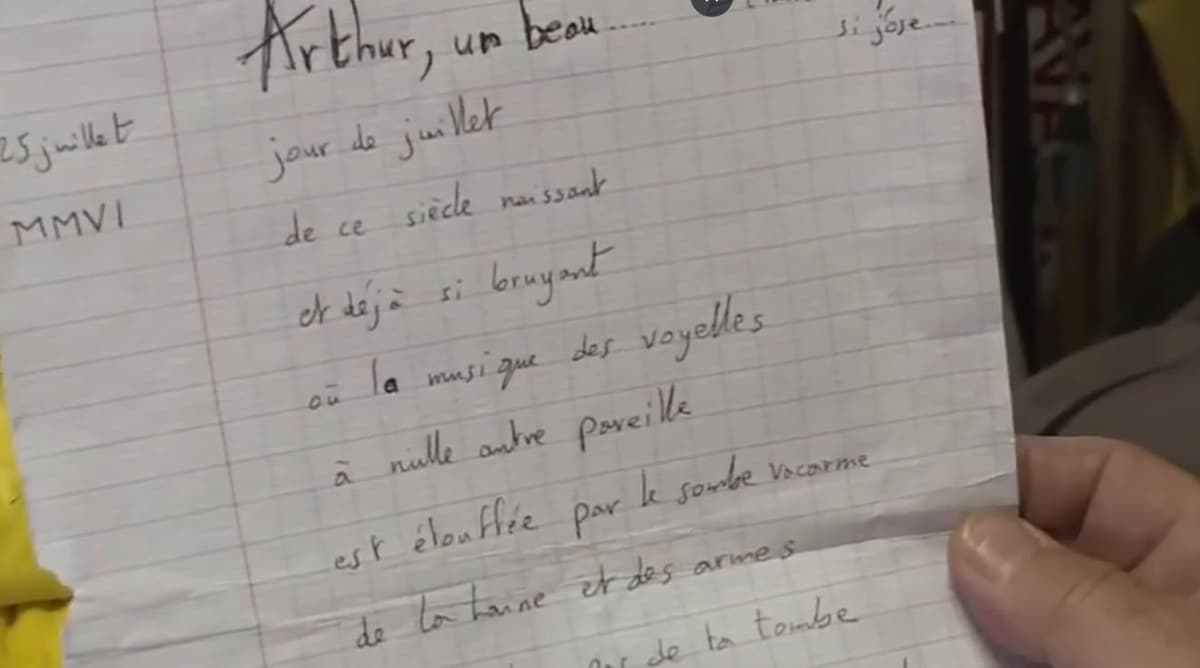 Arthur, un beau.....
si j'ose...
25 juillet
MMVI
jour de juillet
de ce siècle naissant
et déjà si bruyant
où la musique des voyelles
à nulle autre pareille
est étouffée par le sombre vacarme
de la haine et des armes
de ta tombe